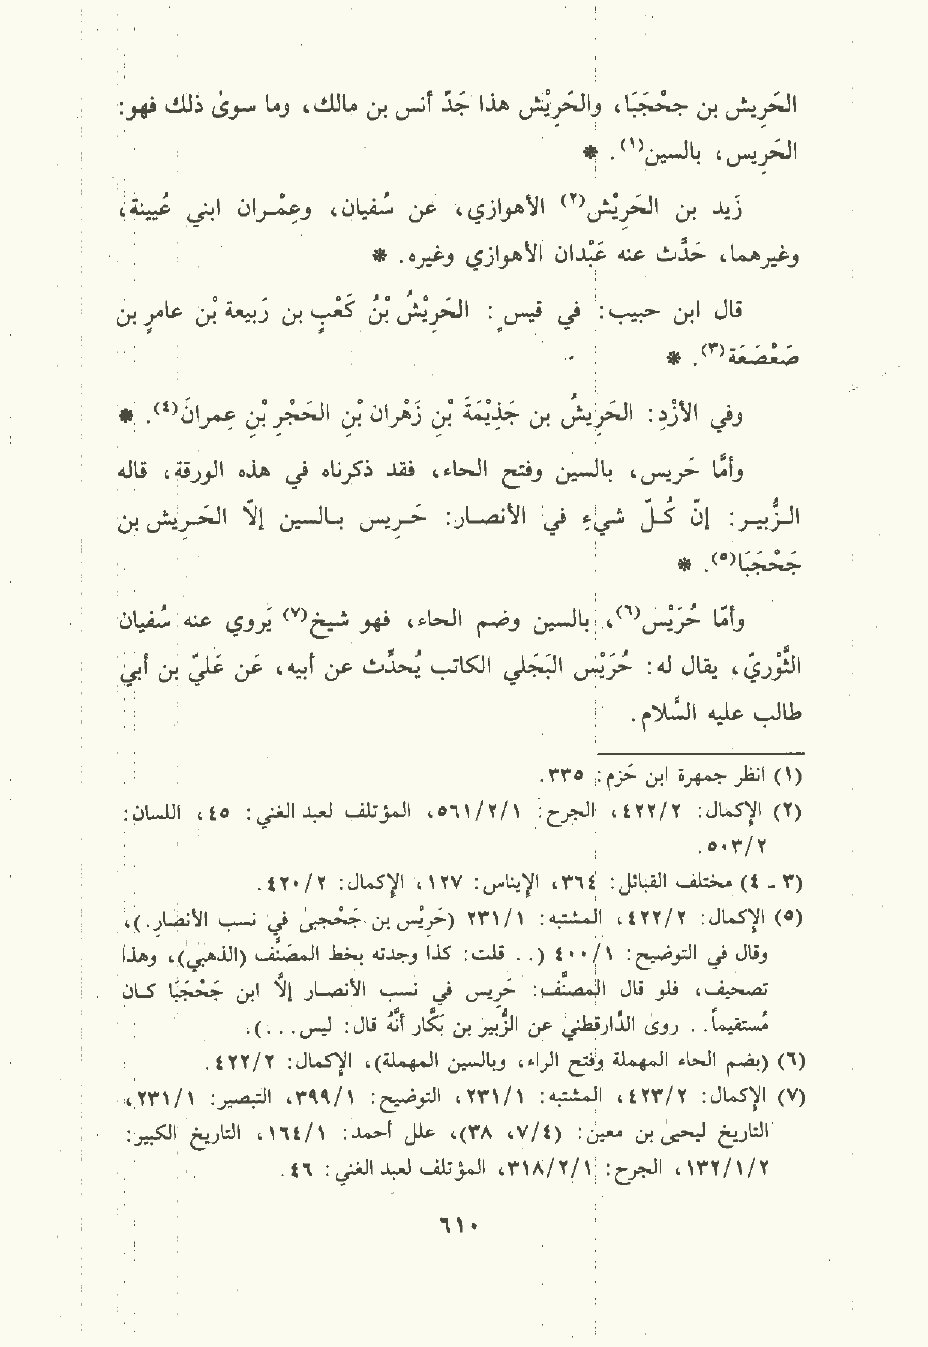 الحَرِيش بن جَحْجَبَا، والحَرِيْش هذا جَدّ أنس بن مالك، وما سوىٰ ذلك فهو:
الحَرِيس، بالسين(١). *
زَيد بن الحَرِيْش(٢) الأهوازي، عن سُفيان، وعِمْران ابني عُيينة،
وغيرهما، حَدَّث عنه عَبْدان الأهوازي وغيره. *
قال ابن حبيب: في قيسٍ: الحَرِيْشُ بْنُ كَعْبِ بن رَبيعة بْن عامرِ بن
صَعْصَعَة(٣). *
وفي الأزْدِ: الحَرِيشُ بن جَذِيْمَةَ بْنِ زَهْران بْنِ الحَجْرِ بْنِ عِمرانَ(٤). *
وأمَّا حَرِيس، بالسين وفتح الحاء، فقد ذكرناه في هذه الورقة، قاله
الزُّبير: إنّ كُلّ شيءٍ في الأنصار: حَرِيس بالسين إلاّ الحَرِيش بن
جَحْجَبَا(٥). *
وأمّا حُرَيْس(٦)، بالسين وضم الحاء، فهو شيخ(٧) يَروي عنه سُفيان
الثَّوْريّ، يقال له: حُرَيْس البَجَلي الكاتب يُحدِّث عن أبيه، عَن عَليّ بن أبي
طالب عليه السَّلام.
(١) انظر جمهرة ابن حَزم: ٣٣٥.
(٢) الإكمال: ٤٢٢/٢، الجرح: ٥٦١/٢/١، المؤتلف لعبد الغني: ٤٥، اللسان:
٥٠٣/٢.
(٣ - ٤) مختلف القبائل: ٣٦٤، الإيناس: ١٢٧، الإكمال: ٤٢٠/٢.
(٥) الإكمال: ٤٢٢/٢، المشتبه: ٢٣١/١ (حَرِيْس بن جَحْجبىٰ في نسب الأنصار.)،
وقال في التوضيح: ٤٠٠/١ (.. قلت: كذا وجدته بخط المصَنِّف (الذهبي)، وهذا
تصحيف، فلو قال المصنِّف: حَرِيس في نسب الأنصار إلَّا ابن جَحْجَبَا كان
مُستقيماً.. روى الدَّارقطني عن الزُّبير بن بَكَّار أنَّهُ قال: ليس...).
(٦) (بضم الحاء المهملة وفتح الراء، وبالسين المهملة)، الإكمال: ٤٢٢/٢.
(٧) الإكمال: ٤٢٣/٢، المشتبه: ٢٣١/١، التوضيح: ٣٩٩/١، التبصير: ٢٣١/١،
التاريخ ليحيىٰ بن معين: (٧/٤، ٣٨)، علل أحمد: ١٦٤/١، التاريخ الكبير:
١٣٢/١/٢، الجرح: ٣١٨/٢/١، المؤتلف لعبد الغني: ٤٦.
٦١٠